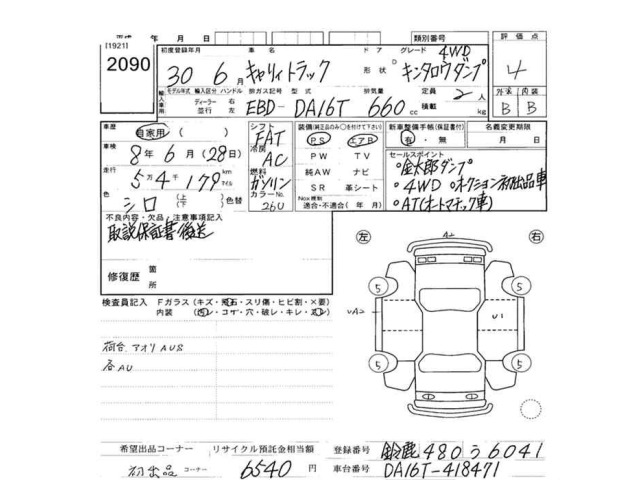 [1921]
2090
平成 年 月 日
類別番号
評価点
4
外装 内装
B B
初度登録年月
30 6月
車名
キャリィトラック
ドア
形状 D
グレード 4WD
キンタロウダンプ
輸入車用
モデル年式 輸入区分 ハンドル
ディーラー 右
並行 左
排ガス記号 型式
EBD- DA16T
排気量
660 cc
定員 2人
積載 kg
車歴
自家用 ( )
車検
8年 6月 (28日)
走行
5万4千179 km マイル
色
シロ (上 下) 色替
シフト
FAT
冷房
AC
燃料
ガソリン
カラーNo.
26U
装備(純正品のみ○を付けて下さい)
PS エアB
PW TV
純AW ナビ
SR 革シート
Nox規制
適合・不適合( 年 月)
新車整備手帳(保証書付)
有・無
名義変更期限
月 日
セールスポイント
○金太郎ダンプ
○4WD ○オークション初出品車
○AT(オートマチック車)
不良内容・欠品・注意事項記入
取説保証書後送
修復歴
箇所
検査員記入 Fガラス (キズ・飛石・スリ傷・ヒビ割・X要)
内装 (汚レ・コゲ・穴・破レ・キレ・スレ)
荷台 アオリAUS
各AU
左
右
A2
5
5
UA2
U1
5
5
希望出品コーナー
初出品 コーナー
リサイクル預託金相当額
6540 円
登録番号 鈴鹿 480 う 6041
車台番号 DA16T-418471